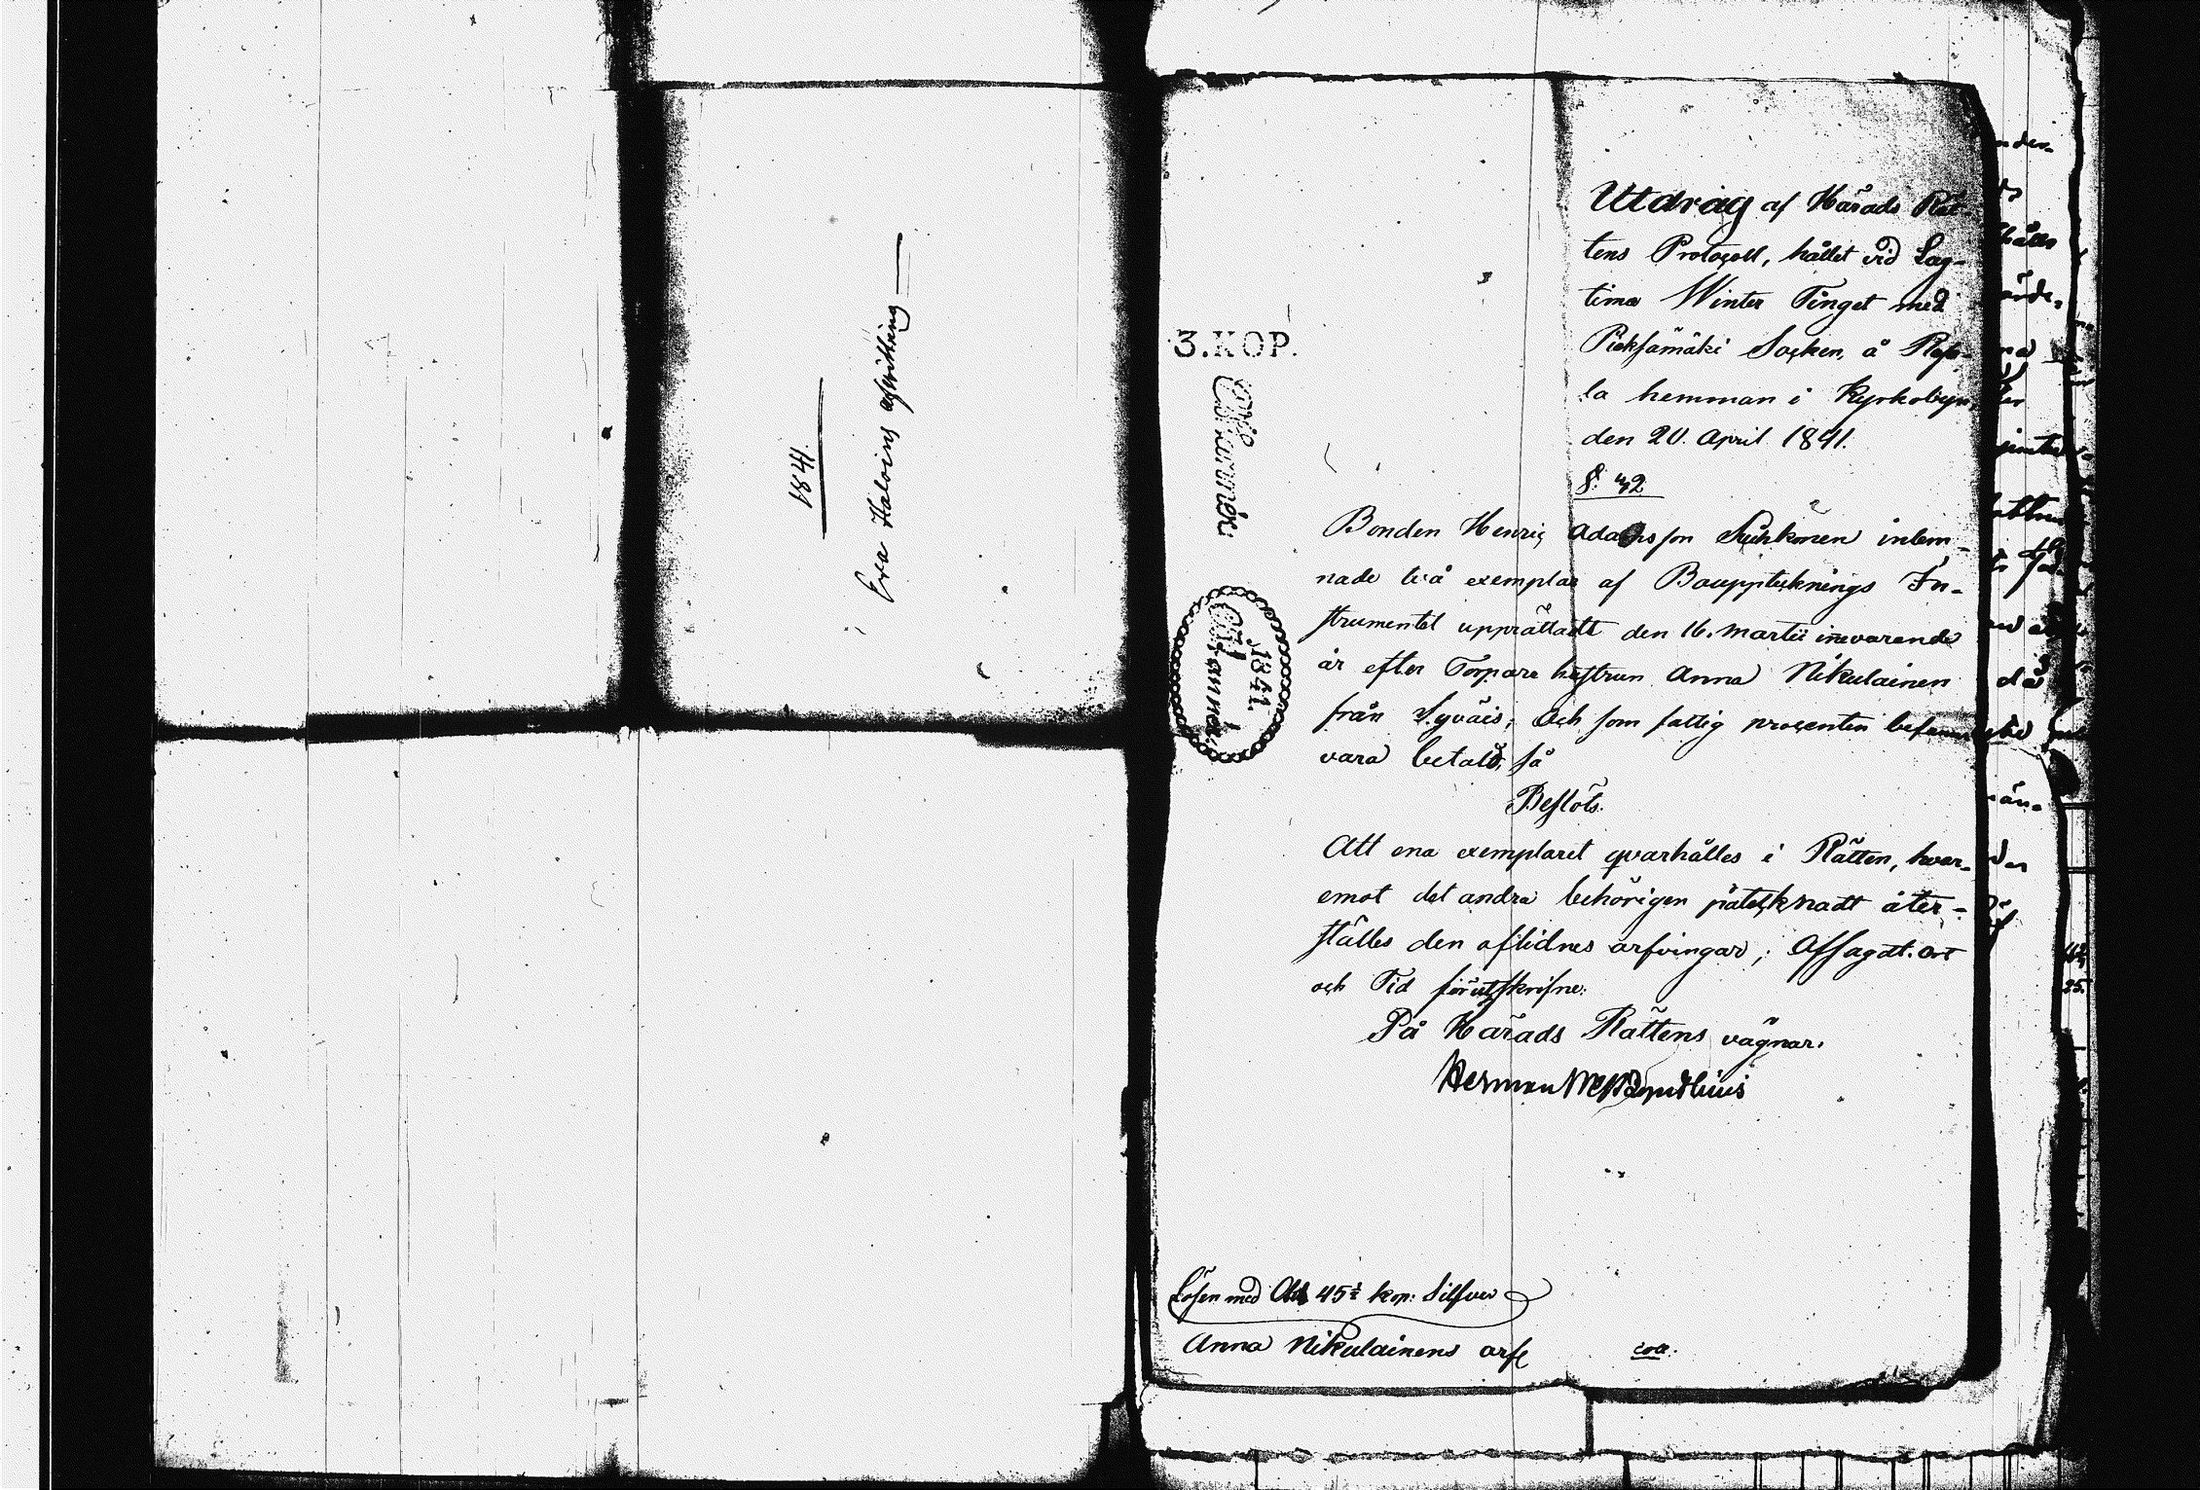 1841.
Eva Haloins afvittring
3.KOP.
Charta
1841.
Utdrag af Härads Rät-
tens Protocoll, hållet vid Lag-
tima Winter Tinget med
Pieksämäki Socken, å
la hemman i Kyrkobyn,
den 20 April 1841.
§. 42
Bonden Henric Adamsson inlem-
nade två exemplar af Bouppteknings In-
strumentet upprättadt den 16. Martii innevarande
år efter Torpare hustrun Anna Nikulainen
från Syväis; Och som fattig procenten befanns
vara betald, så
Beslöts.
Att ena exemplaret qvarhålles i Rätten, hvar-
emot det andra behörigen påtecknadt åter-
ställes den aflidnes arfvingar; Afsagdt. Ort
och Tid förutskrifne.
På Härads Rättens vägnar.
Herman
Lösen med 45½ kop: Silfver
Anna Nikulainens arfv